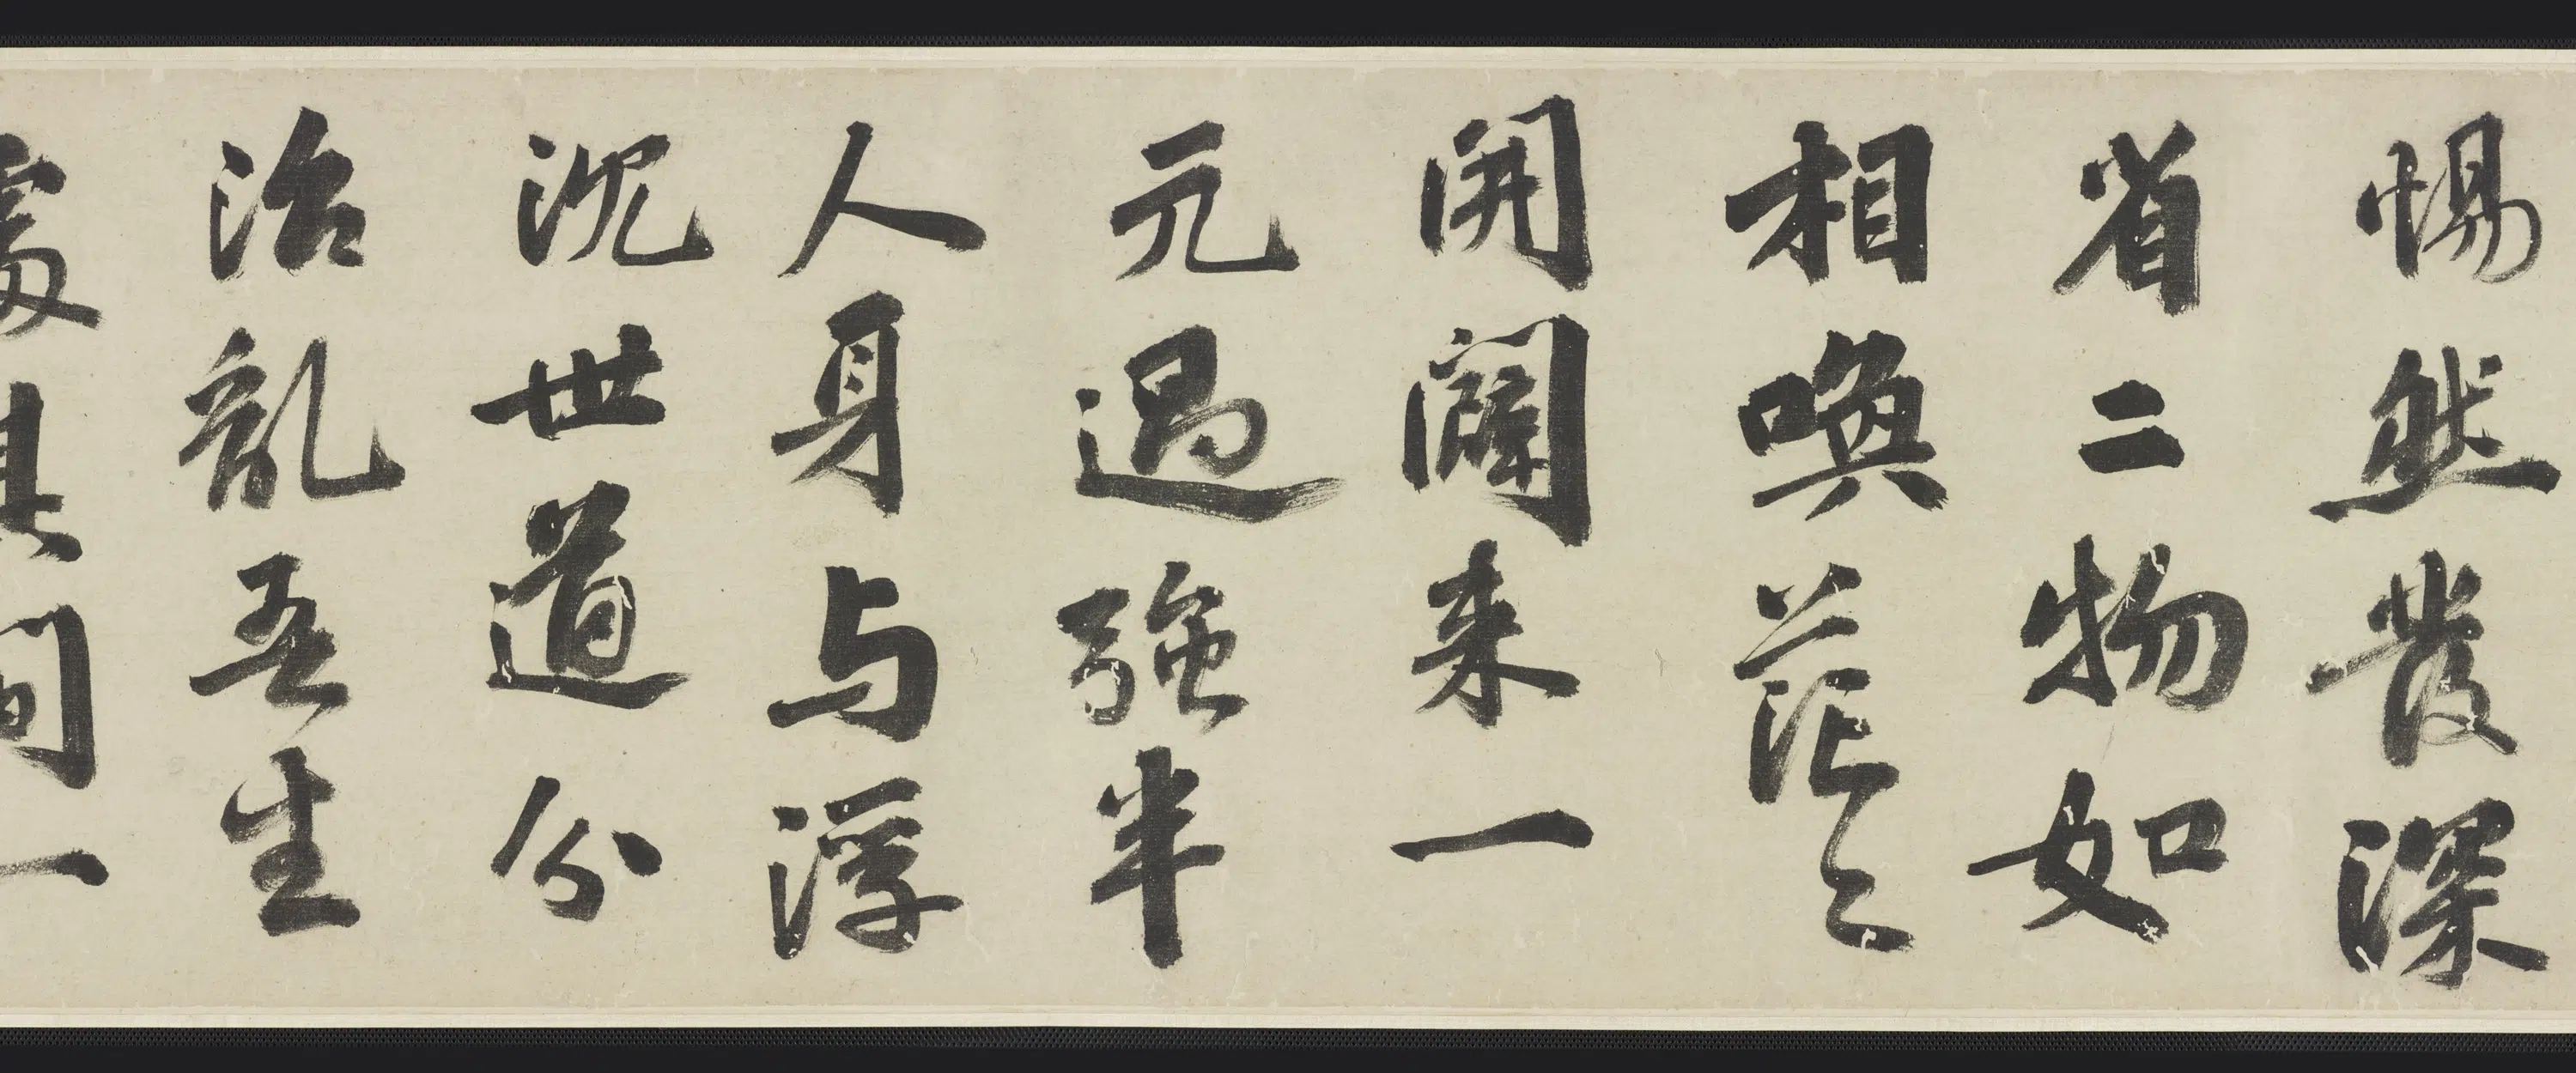 惕然發深
省二物如
相喚茫〻
開闢来一
元過強半
人身与浮
沉世道分
治亂吾生
處其間一